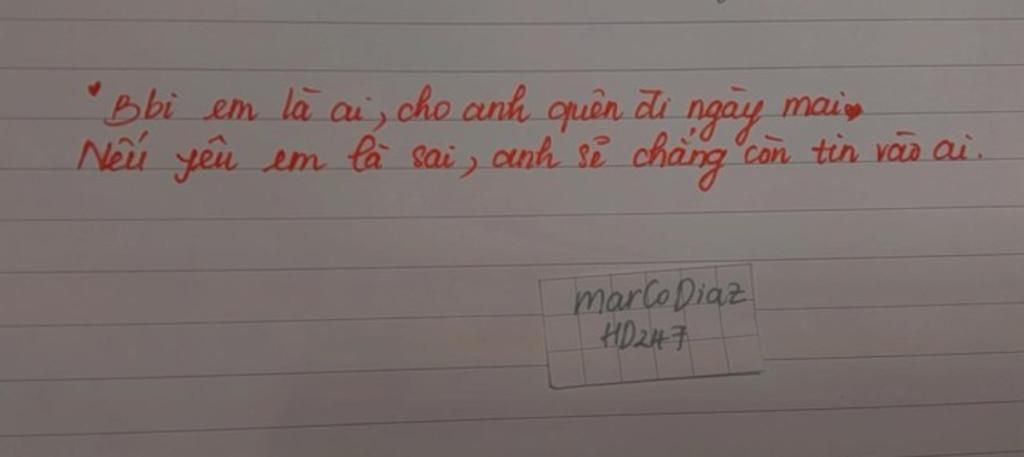 Bbi em là ai, cho anh quên đi ngày mai
Nếu yêu em là sai, anh sẽ chẳng còn tin vào ai.
marCoDiaz
HD247